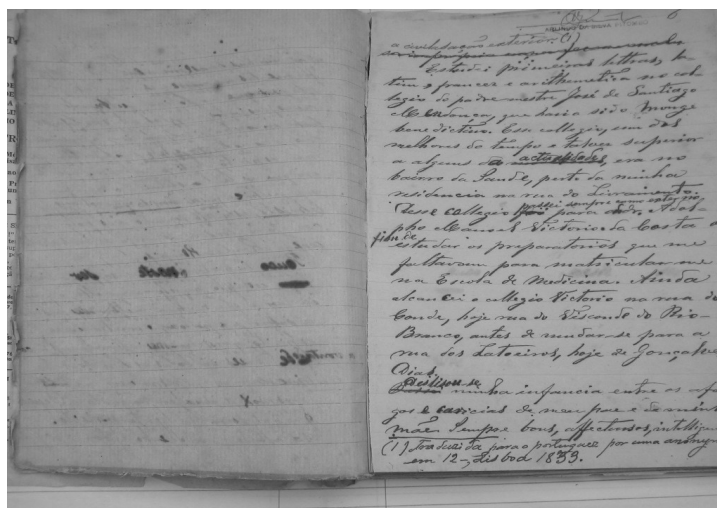 6
a civilisação exterior. (1)
Estudei primeiras lettras, la-
tim, francez e arithmetica no col-
legio do padre mestre José de Santiago
Mendonça, que havia sido monge
benedictino. Esse collegio, um dos
melhores do tempo e talvez superior
a alguns da actualidade, era no
bairro da Saude, perto da minha
residencia na rua do Livramento.
Desse collegio passei sempre como interno
para o de Adol-
pho Manoel Victorio da Costa a
fim de estudar os preparatorios que me
faltavam para matricular-me
na Escola de Medicina. Ainda
alcancei o collegio Victorio na rua do
Conde, hoje rua do Visconde do Rio-
Branco, antes de mudar-se para a
rua dos Latoeiros, hoje de Gonçalves
Dias.
Deslisou-se minha infancia entre os afa-
gos e caricias de meu pae e de minha
mãe. Sempre bons, affectuosos, intellige
(1) Traduzida para o portuguez por uma anonym
em 12-, Lisboa 1833.